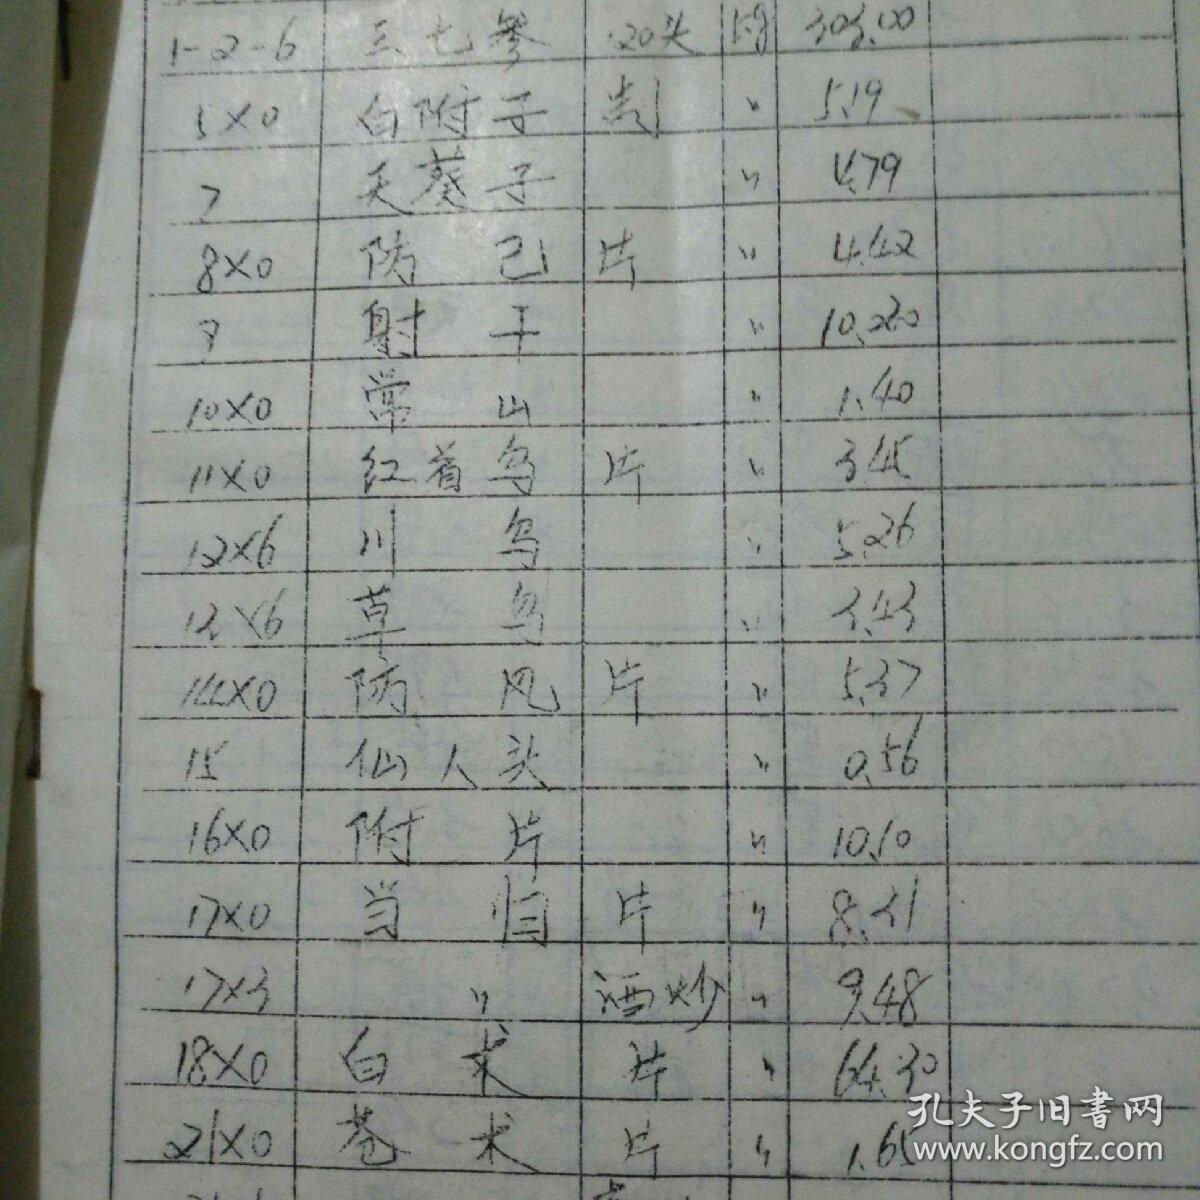 1-2-6 三七参 20头 303.00
5×0 白附子 制 〃 5.19
7 天葵子 〃 4.79
8×0 防己 片 〃 4.42
9 射干 〃 10.20
10×0 常山 〃 1.40
11×0 红首乌 片 〃 3.45
12×6 川乌 〃 5.26
13×6 草乌 〃 3.43
14×0 防风 片 〃 5.37
15 仙人头 〃 0.56
16×0 附片 〃 10.10
17×0 当归 片 〃 8.31
17×3 〃 酒炒 〃 9.48
18×0 白术 片 〃 64.30
21×0 苍术 片 〃 1.65
孔夫子旧書网
www.kongfz.com